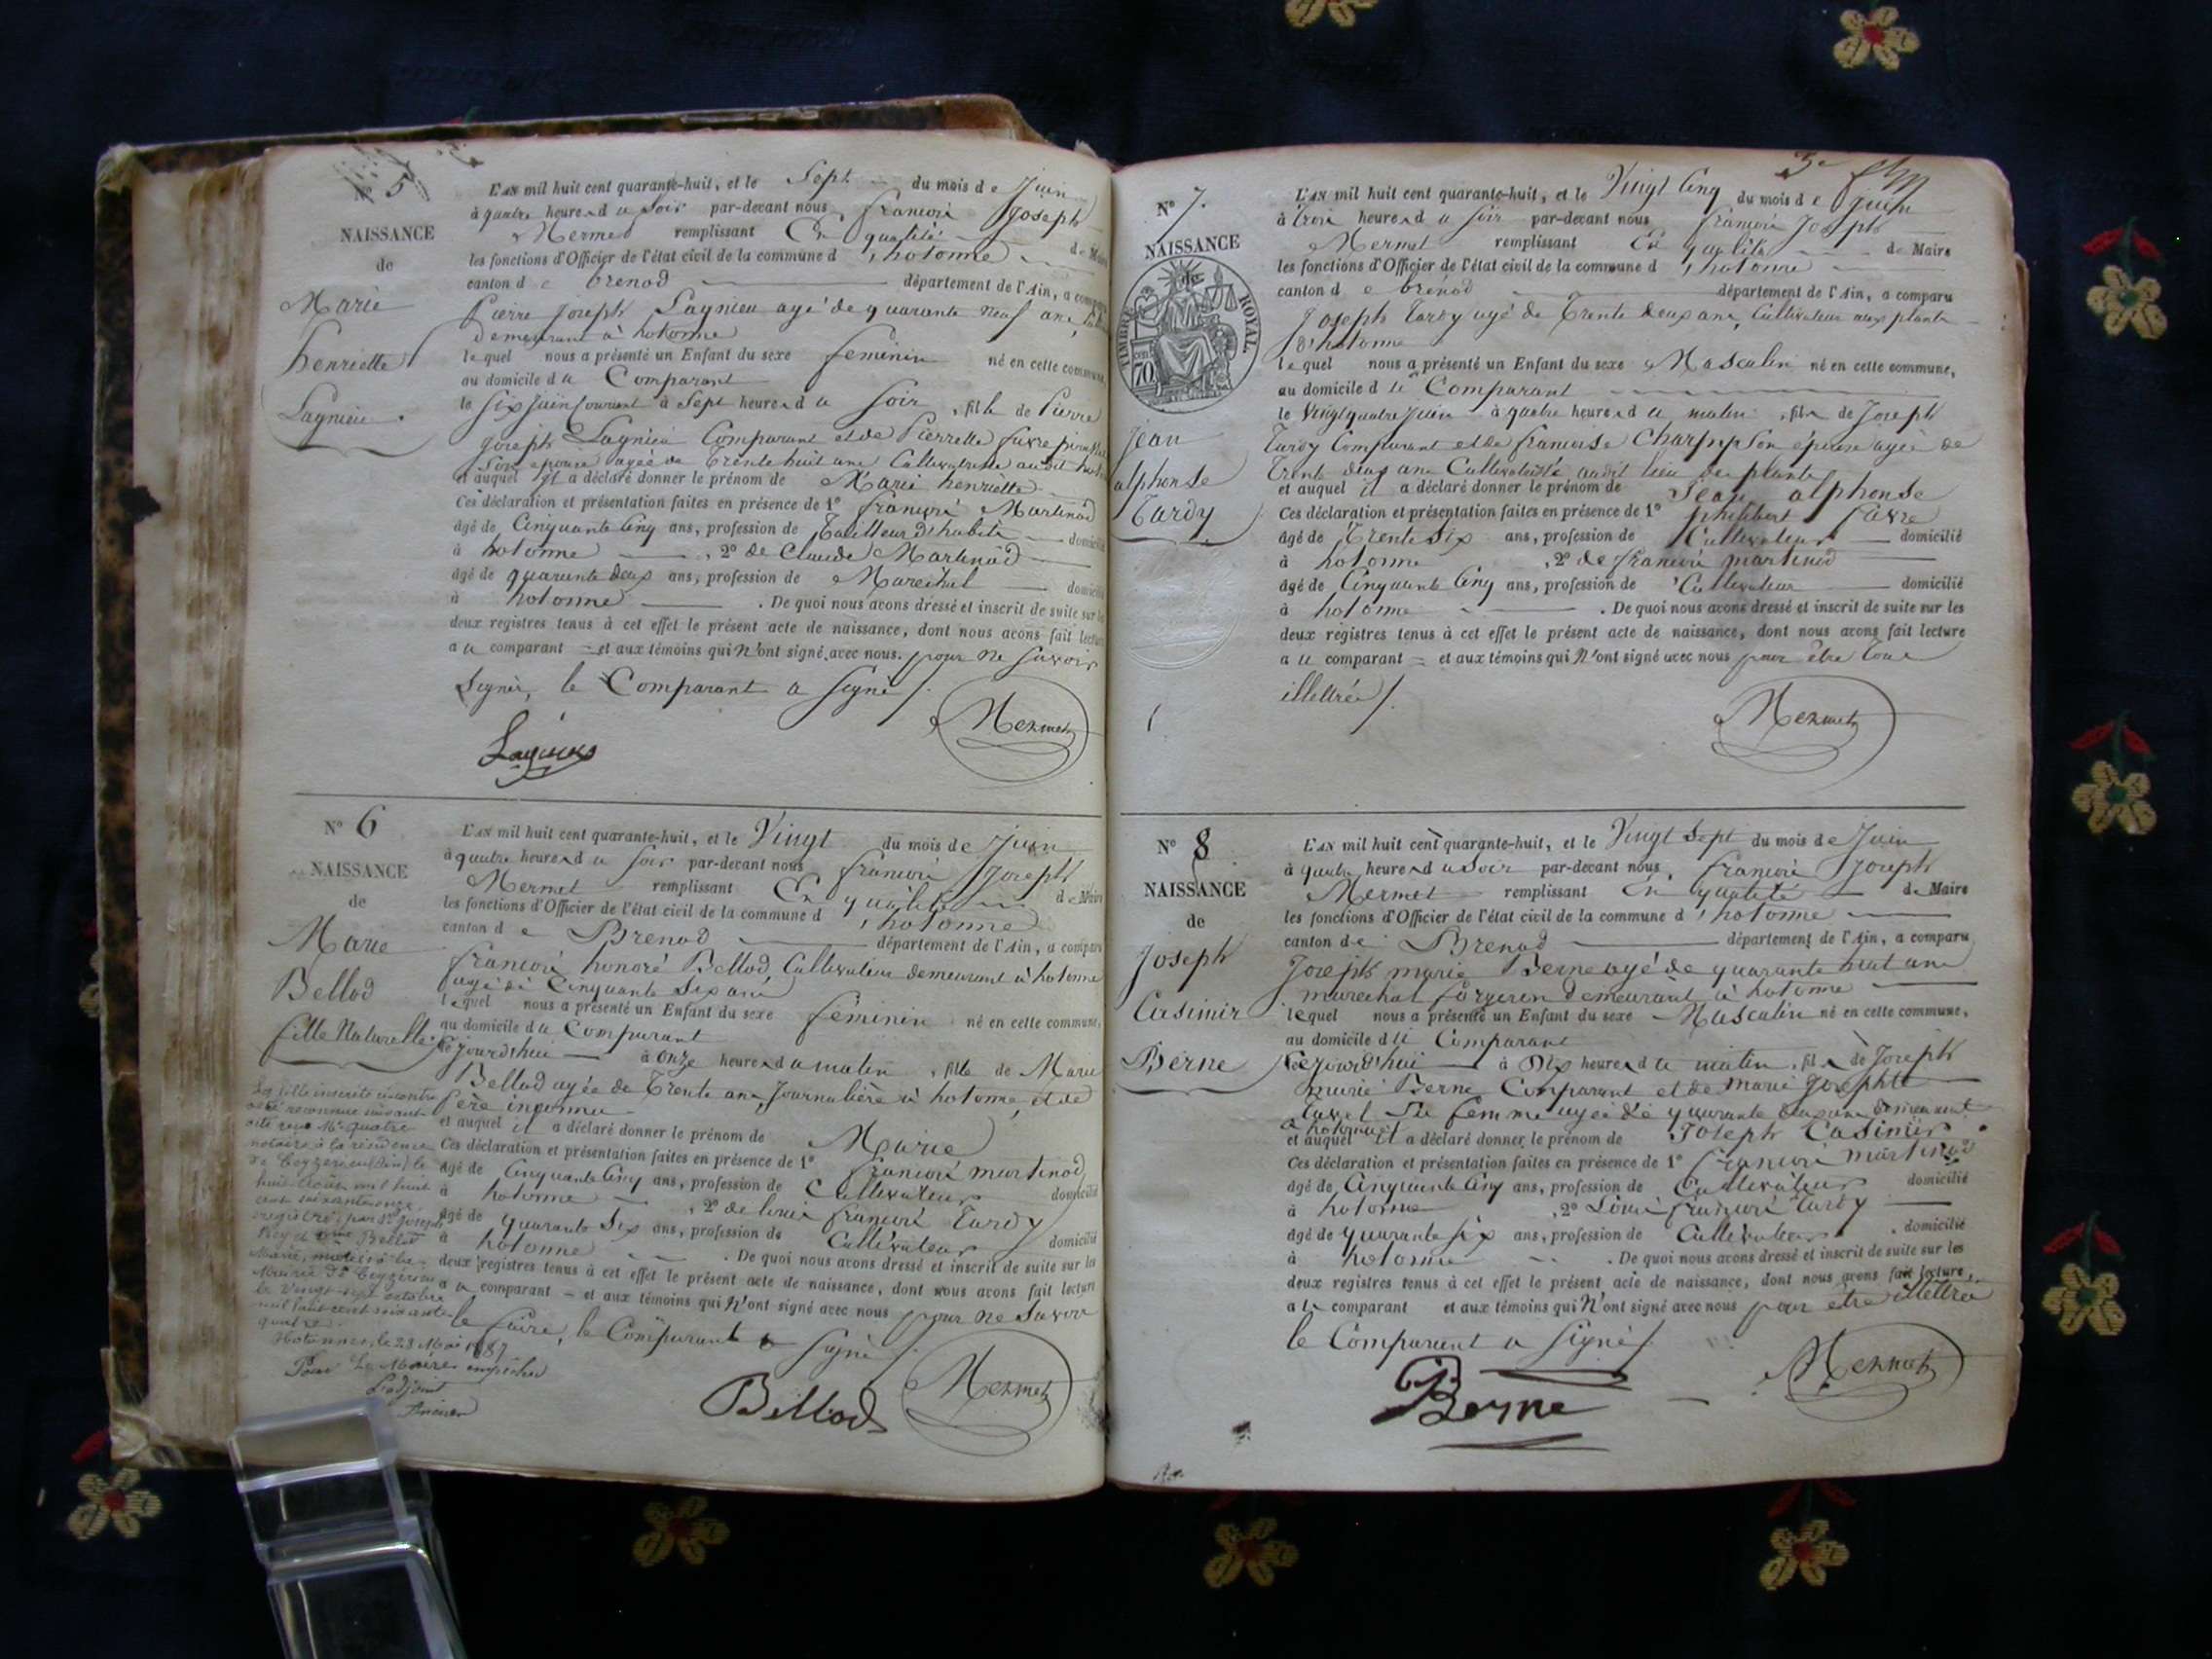 N° 5
NAISSANCE
de
Marie
henriette
Lagnieu
L'AN mil huit cent quarante-huit, et le Sept du mois de Juin
à quatre heures du Soir par-devant nous, francois Joseph
Mermet remplissant En qualité de Maire
les fonctions d'Officier de l'état civil de la commune d'hotonne
canton de brenod département de l'Ain, a comparu
Pierre Joseph Lagnieu agé de quarante neuf ans,
demeurant à hotonne
lequel nous a présenté un Enfant du sexe feminin né en cette commune,
au domicile du Comparant
le Six Juin Courant à Sept heures du Soir, fille de Pierre
Joseph Lagnieu Comparant et de Pierrette favre
Son epouse agée de Trente huit ans Cultivatrice audit
et auquel il a déclaré donner le prénom de Marie henriette
Ces déclaration et présentation faites en présence de 1° francois Martinod
âgé de Cinquante Cinq ans, profession de Tailleur d'habits domicilié
à hotonne, 2° de Claude Martinod
âgé de quarante deux ans, profession de Marechal domicilié
à hotonne. De quoi nous avons dressé et inscrit de suite sur les
deux registres tenus à cet effet le présent acte de naissance, dont nous avons fait lecture
au comparant et aux témoins qui n'ont signé avec nous. pour ne Savoir
Signer, le Comparant a Signé /.
Mermet
Lagnieu
N° 6
NAISSANCE
de
Marie
Bellod
fille Naturelle
L'AN mil huit cent quarante-huit, et le Vingt du mois de Juin
à quatre heures du Soir par-devant nous francois Joseph
Mermet remplissant En qualité de Maire
les fonctions d'Officier de l'état civil de la commune d'hotonne
canton de Brenod département de l'Ain, a comparu
francois honoré Bellod, Cultivateur demeurant à hotonne
agé de Cinquante Six ans
lequel nous a présenté un Enfant du sexe féminin né en cette commune,
au domicile du Comparant
Cejourd'hui à onze heures du matin, fille de Marie
Bellod agée de Trente ans Journalière à hotonne, et de
père inconnu
et auquel il a déclaré donner le prénom de Marie
Ces déclaration et présentation faites en présence de 1° francois martinod
âgé de Cinquante Cinq ans, profession de Cultivateur domicilié
à hotonne, 2° de louis francois Tardy
âgé de quarante Six ans, profession de Cultivateur domicilié
à hotonne. De quoi nous avons dressé et inscrit de suite sur les
deux registres tenus à cet effet le présent acte de naissance, dont nous avons fait lecture
au comparant et aux témoins qui n'ont signé avec nous pour ne Savoir
le faire, le Comparant a Signé /.
Bellod
Mermet
La fille inscrite ci contre
a été reconnue suivant
acte reçu Me quatre
notaire à la résidence
de Ceyzerieu (Ain) le
huit Août mil huit
cent soixante onze,
Marie, mariés à la
Mairie de Ceyzerieu
le Vingt sept octobre
mil huit cent soixante
quatre.
Hotonnes, le 28 Mai 1887
Pour Le Maire empêché
L'adjoint
N° 7.
NAISSANCE
de
TIMBRE ROYAL
70
Jean
alphonse
Tardy
L'AN mil huit cent quarante-huit, et le Vingt Cinq du mois de Juin
à Trois heures du Soir par-devant nous francois Joseph
Mermet remplissant En qualité de Maire
les fonctions d'Officier de l'état civil de la commune d'hotonne
canton de brenod département de l'Ain, a comparu
Joseph Tardy agé de Trente deux ans, Cultivateur aux plants
d'hotonne
lequel nous a présenté un Enfant du sexe Masculin né en cette commune,
au domicile du Comparant
le Vingt quatre Juin à quatre heures du matin, fils de Joseph
Tardy Comparant et de francoise Charpy Son épouse agée de
Trente deux ans Cultivatrice audit lieu des plants
et auquel il a déclaré donner le prénom de Jean alphonse
Ces déclaration et présentation faites en présence de 1° philibert favre
âgé de Trente Six ans, profession de Cultivateur domicilié
à hotonne, 2° de francois martinod
âgé de Cinquante Cinq ans, profession de Cultivateur domicilié
à hotonne. De quoi nous avons dressé et inscrit de suite sur les
deux registres tenus à cet effet le présent acte de naissance, dont nous avons fait lecture
au comparant et aux témoins qui n'ont signé avec nous pour être tous
illettrés /.
Mermet
N° 8
NAISSANCE
de
Joseph
Casimir
Berne
L'AN mil huit cent quarante-huit, et le Vingt Sept du mois de Juin
à quatre heures du Soir par-devant nous, francois Joseph
Mermet remplissant En qualité de Maire
les fonctions d'Officier de l'état civil de la commune d'hotonne
canton de Brenod département de l'Ain, a comparu
Joseph marie Berne agé de quarante huit ans
marechal forgeron demeurant à hotonne
lequel nous a présenté un Enfant du sexe Masculin né en cette commune,
au domicile du Comparant
Cejourd'hui à Dix heures du matin, fils de Joseph
marie Berne Comparant et de marie Josephte
Sa femme agée de quarante ans demeurant
a hotonne
et auquel il a déclaré donner le prénom de Joseph Casimir
Ces déclaration et présentation faites en présence de 1° francois martinod
âgé de Cinquante Cinq ans, profession de Cultivateur domicilié
à hotonne, 2° Louis francois Tardy
âgé de quarante Six ans, profession de Cultivateur domicilié
à hotonne. De quoi nous avons dressé et inscrit de suite sur les
deux registres tenus à cet effet le présent acte de naissance, dont nous avons fait lecture,
au comparant et aux témoins qui n'ont signé avec nous pour être illettrés
le Comparant a Signé /.
Berne
Mermet